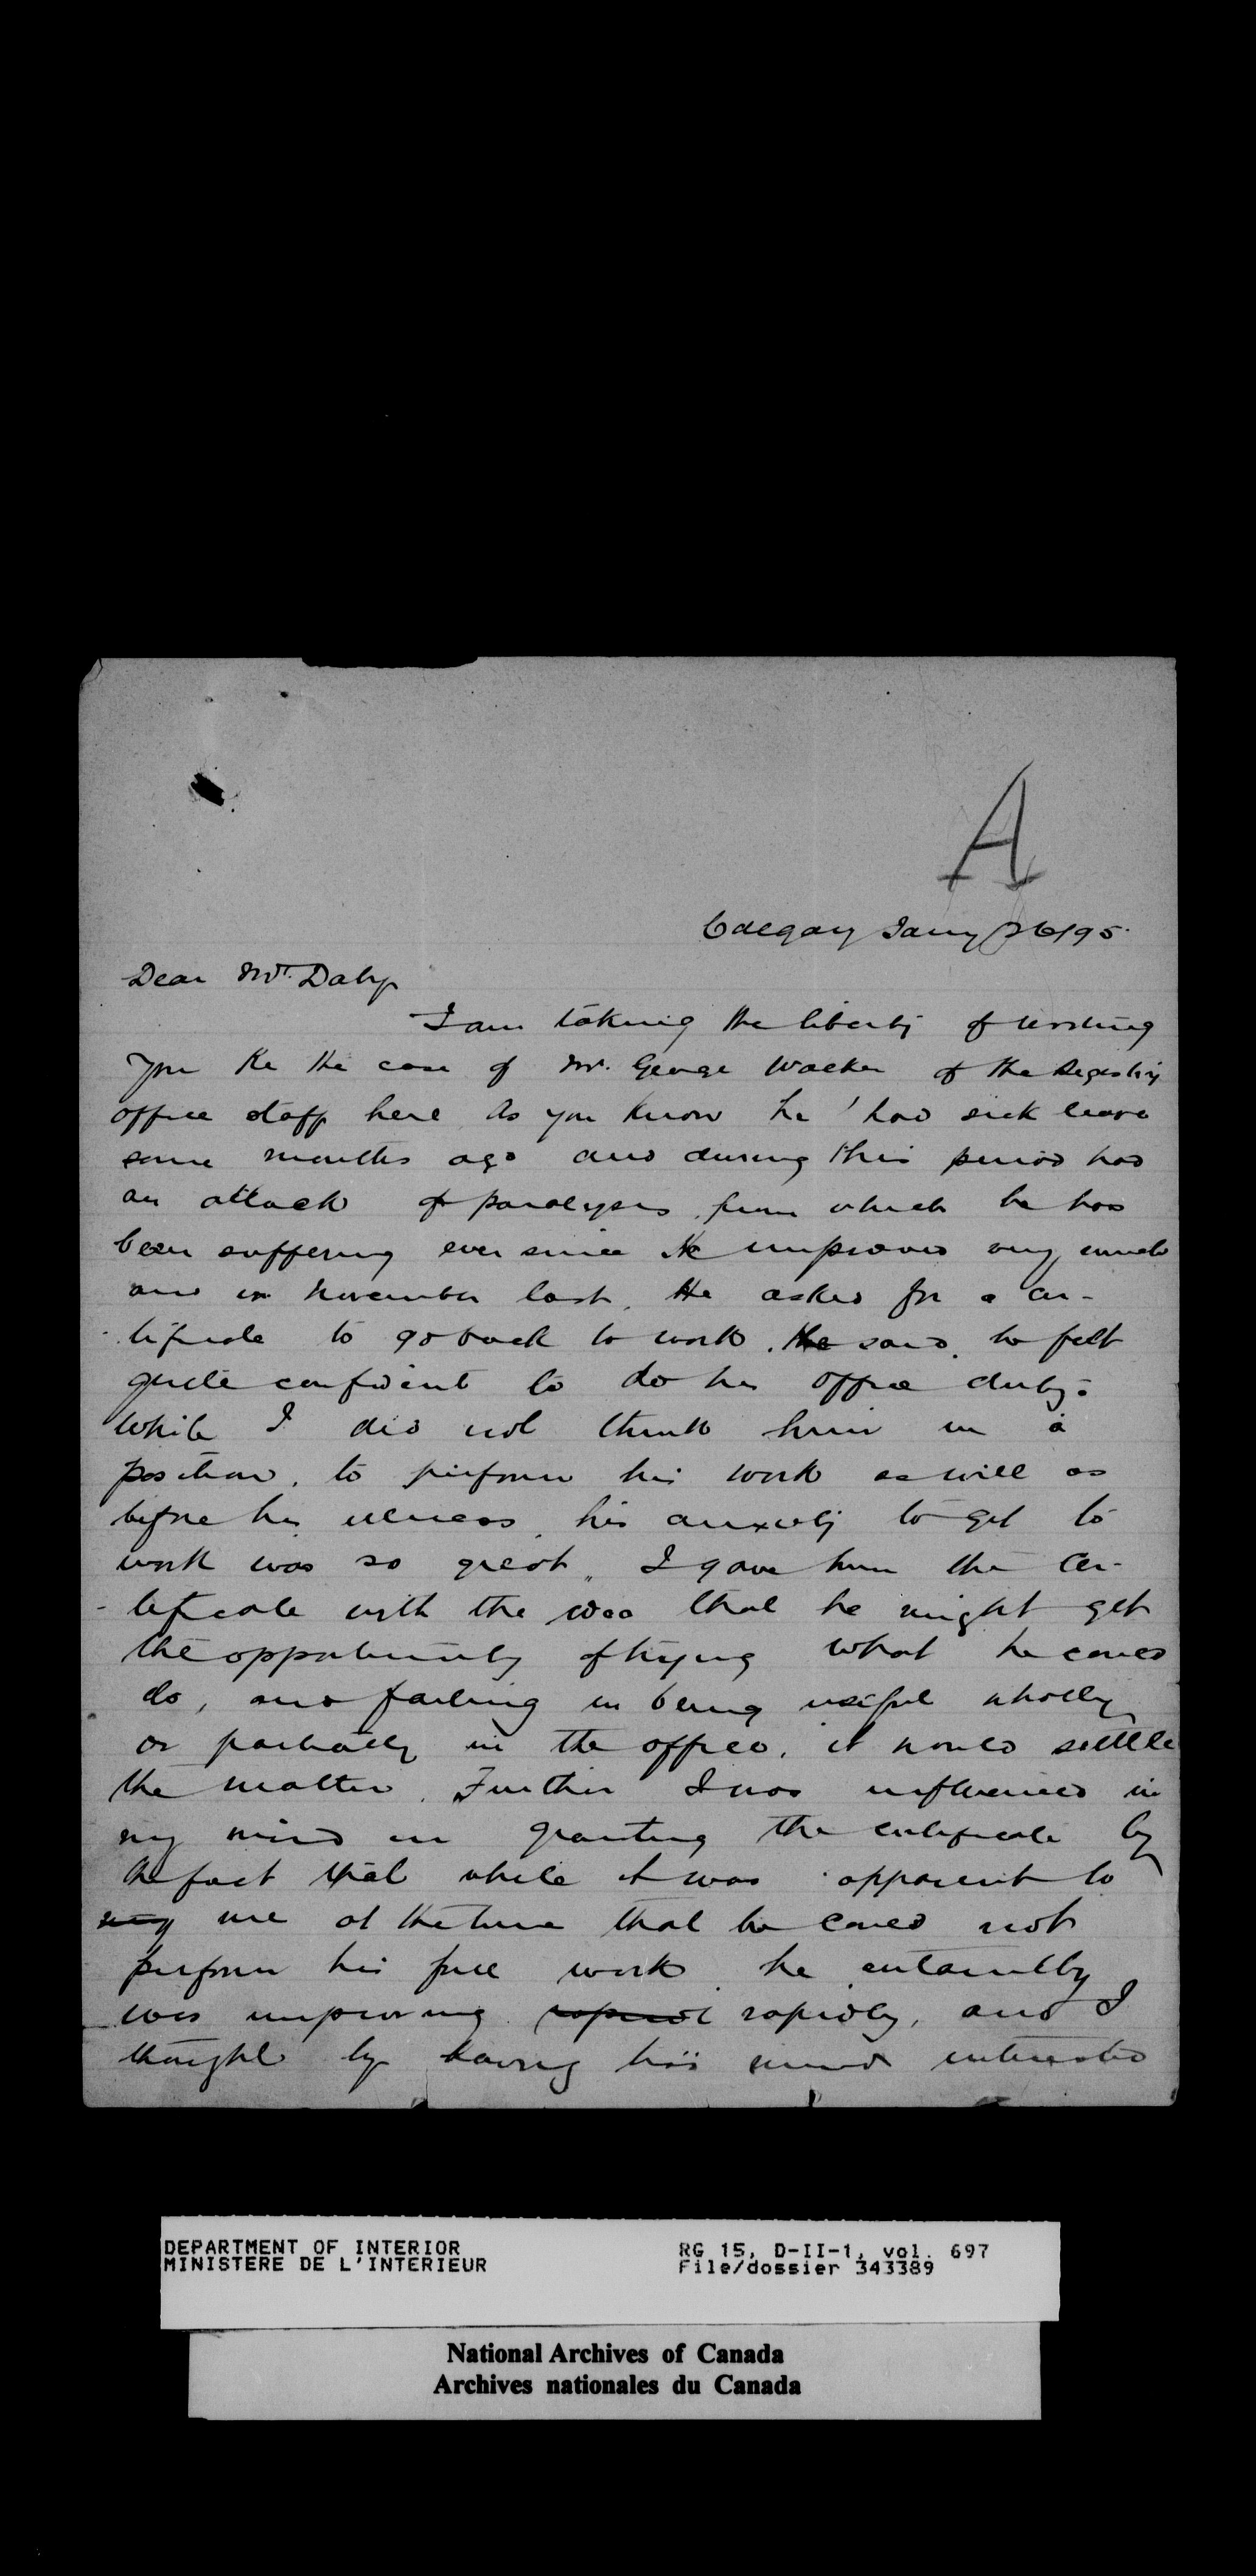 A
Calgary Jany 26/95.
Dear Mr. Daly
I am taking the liberty of writing
you Re the case of Mr. George Walker of the Registry
office staff here As you know he had sick leave
some months ago and during this period had
an attack of paralysis from which he has
been suffering ever since He improved very much
and in November last. He asked for a cer-
-tificate to go back to work. He said he felt
quite confident to do his office duty.
While I did not think him in a
position, to perform his work as well as
before his illness, his anxiety to get to
work was so great, I gave him the cer-
-tificate with the idea that he might get
the opportunity of trying what he could
do, and failing in being useful wholly
or partially in the office, it would settle
the matter. Further I was influenced in
my mind in granting the certificate by
the fact that while it was apparent to
my me at the time that he could not
perform his full work he certainly
was improving rapidl rapidly, and I
thought by having his mind interested
DEPARTMENT OF INTERIOR
MINISTERE DE L'INTERIEUR
RG 15, D-II-1, vol. 697
File/dossier 343389
National Archives of Canada
Archives nationales du Canada